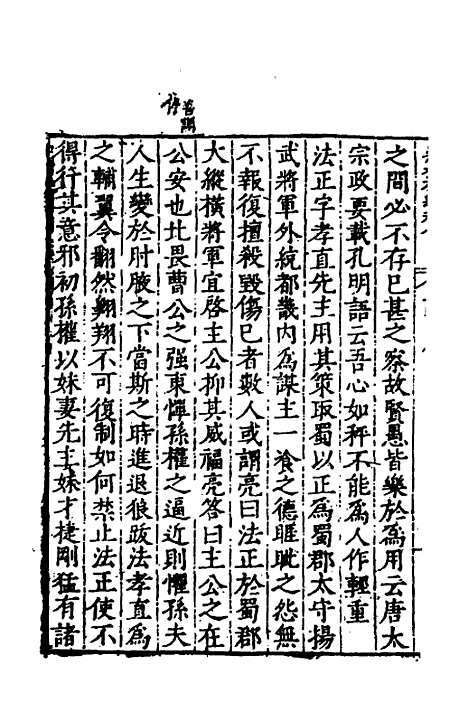 之間必不存巳甚之察故賢愚皆樂於爲用云唐太
宗政要載孔明語云吾心如秤不能爲人作輕重
法正字孝直先主用其策取蜀以正爲蜀郡太守揚
武將軍外統都畿内爲謀主一飡之德睚眦之怨無
不報復擅殺毀傷巳者數人或謂亮曰法正於蜀郡
大縱横將軍宜啓主公抑其威福亮答曰主公之在
公安也北畏曹公之强東憚孫權之逼近則懼孫夫
人生變於肘腋之下當斯之時進退狼跋法孝直爲
之輔翼令翻然翱翔不可復制如何禁止法正使不
得行其意邪初孫權以妹妻先主妹才捷剛猛有諸